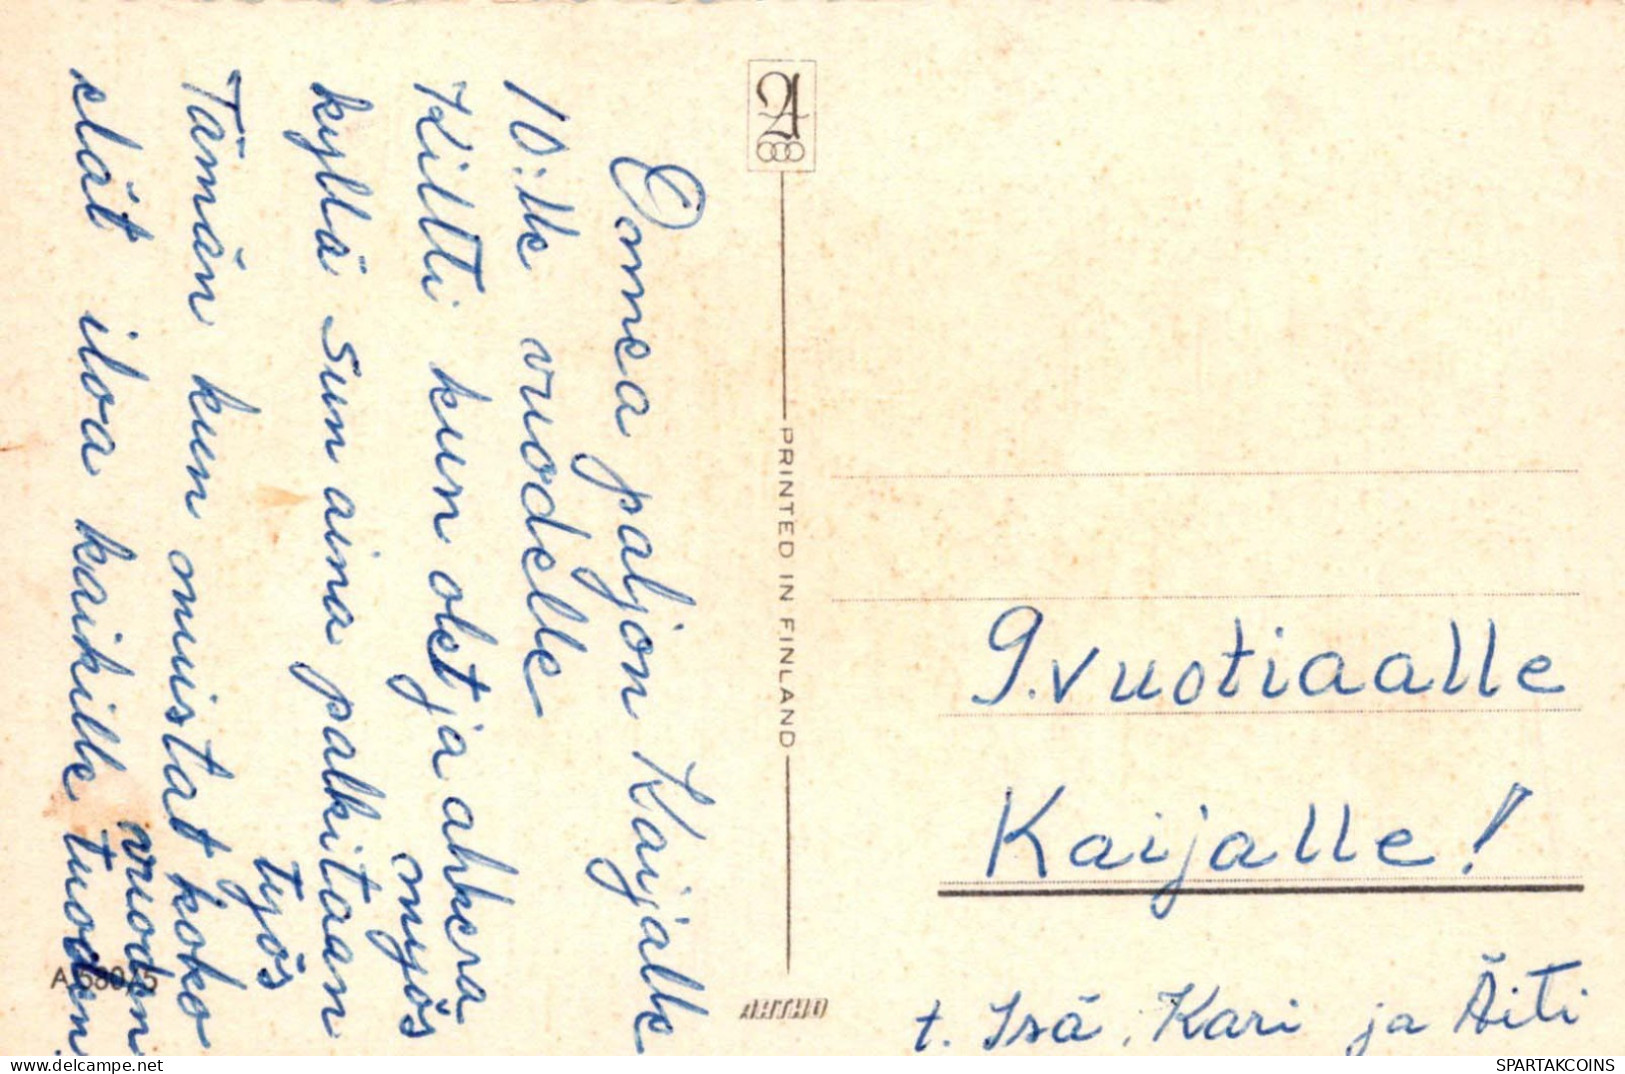 Onnea paljon Kaijalle
10:lle vuodelle
Kiltti kun olet ja ahkera
myös
kyllä sun aina palkitaan
työs
Tämän kun muistat koko
vuoden
elät iloa kaikille tuoden.
PRINTED IN FINLAND
9.vuotiaalle
Kaijalle!
t. Isä, Kari ja Äiti
A 680/5
AHTHO
SPARTAKCOINS